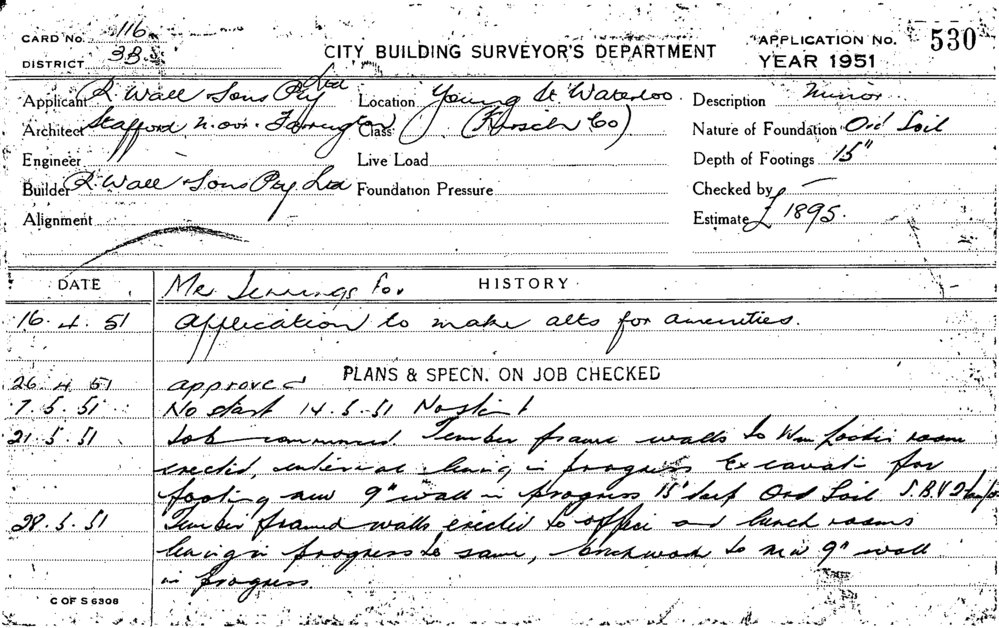 CARD No. 116
DISTRICT 3B.S
CITY BUILDING SURVEYOR'S DEPARTMENT
APPLICATION No. 530
YEAR 1951
Applicant R Wall & Sons Pty Ltd
Location Young St Waterloo.
Description Minor
Architect Stafford Moor & Farrington
Class (Kirsch Co)
Nature of Foundation Ord Soil
Engineer
Live Load
Depth of Footings 15"
Builder R Wall & Sons Pty Ltd
Foundation Pressure
Checked by —
Alignment
Estimate £ 1895.
DATE
HISTORY
Mr Jennings for
16.4.51 Application to make alts for amenities.
PLANS & SPECN. ON JOB CHECKED
26.4.51 approved
7.5.51 No start 14.5.51 No start
21.5.51 Job commenced. Timber frame walls to Wm locker room
erected, internal lining in progress Excavati for
footing new 9" wall in progress 15" deep Ord Soil
28.5.51 Timber framed walls erected to office and lunch rooms
lining in progress to same, brickwork to new 9" wall
in progress.
C OF S 6308